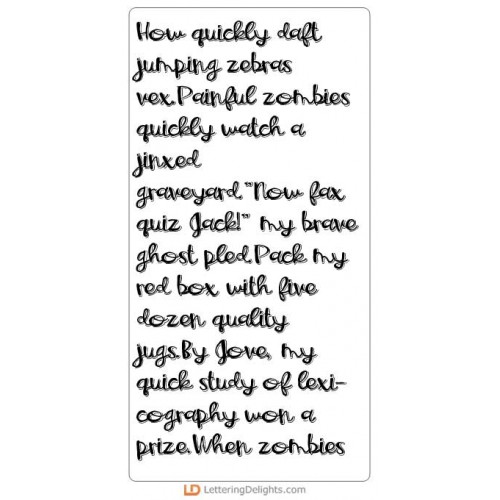 How quickly daft
jumping zebras
vex.Painful zombies
quickly watch a
jinxed
graveyard."Now fax
quiz Jack!" my brave
ghost pled.Pack my
red box with five
dozen quality
jugs.By Jove, my
quick study of lexi-
cography won a
prize.When zombies
LD LetteringDelights.com